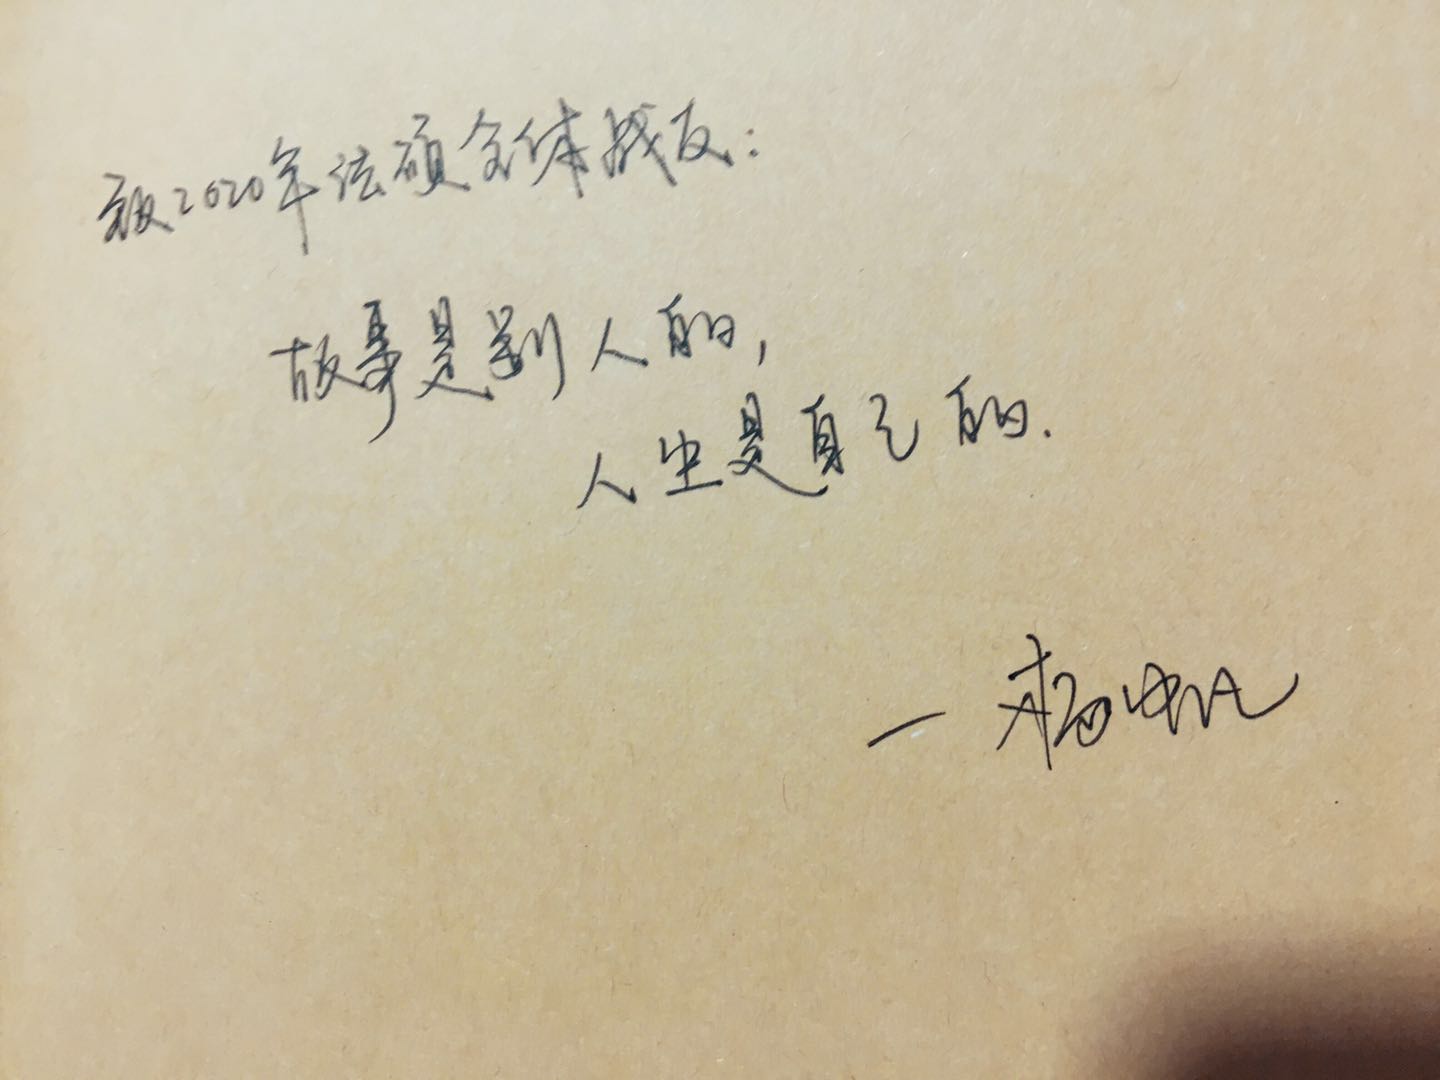 致2020年法硕全体战友:
故事是别人的,
人生是自己的.
一杨